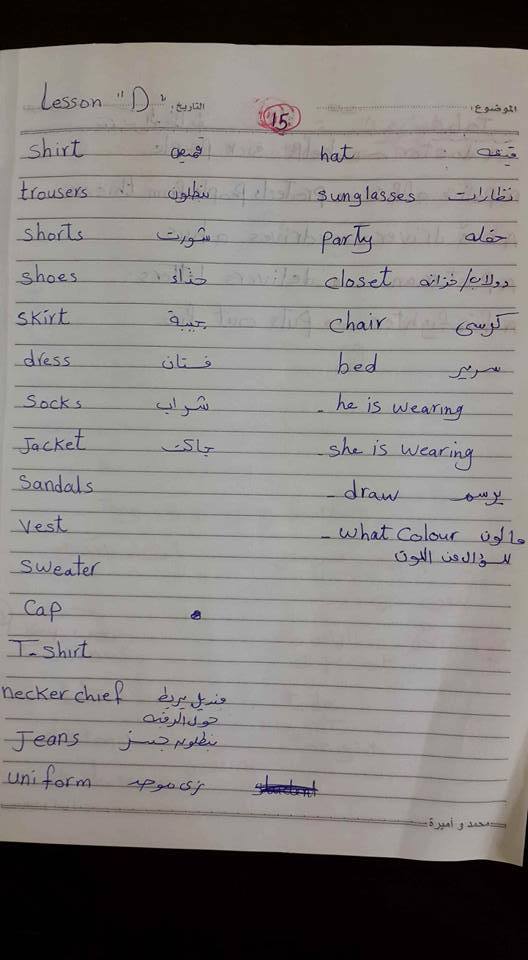 Lesson "D" التاريخ: 15 الموضوع:
shirt قميص hat قبعه
trousers بنطلون sunglasses نظارات
shorts شورت party حفله
shoes حذاء closet دولاب/خزانه
skirt جيبة chair كرسى
dress فستان bed سرير
socks شراب - he is wearing
Jacket جاكت - she is wearing
Sandals - draw يرسم
vest - what colour ما لون
للسؤال عن اللون
sweater
Cap
T-shirt
neckerchief منديل يربط
حول الرقبه
Jeans بنطلون جينز
uniform زى موحد
محمد و أميرة